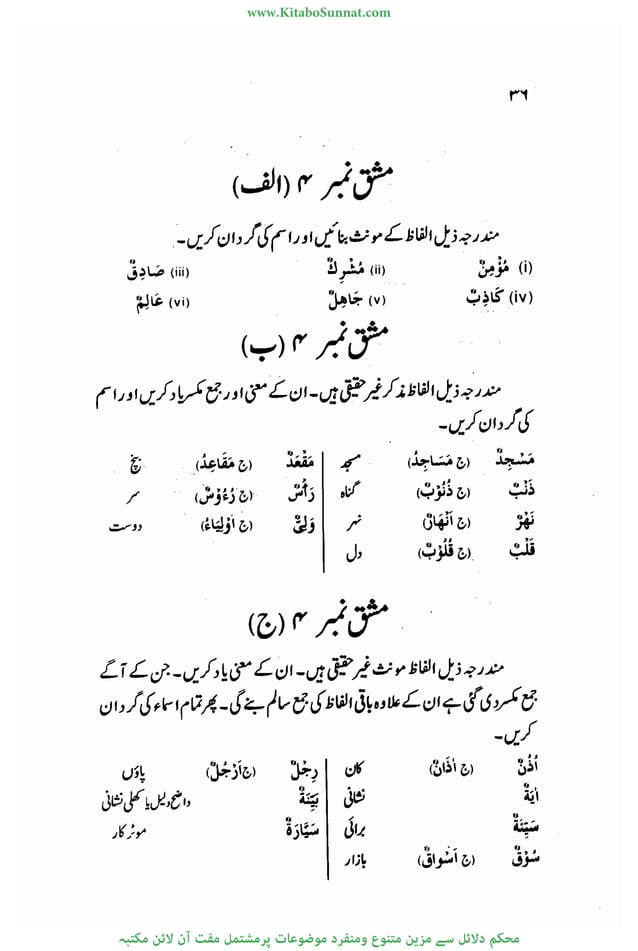 www.KitaboSunnat.com
۳۶
مشق نمبر ۴ (الف)
مندرجہ ذیل الفاظ کے مونث بنائیں اور اسم کی گردان کریں۔
(i) مُؤْمِنٌ (ii) مُشْرِكٌ (iii) صَادِقٌ
(iv) كَاذِبٌ (v) جَاهِلٌ (vi) عَالِمٌ
مشق نمبر ۴ (ب)
مندرجہ ذیل الفاظ مذکر غیر حقیقی ہیں۔ ان کے معنی اور جمع مکسر یاد کریں اور اسم
کی گردان کریں۔
مَسْجِدٌ (ج مَسَاجِدُ) مسجد مَقْعَدٌ (ج مَقَاعِدُ) بنچ
ذَنْبٌ (ج ذُنُوْبٌ) گناہ رَأْسٌ (ج رُءُوْسٌ) سر
نَهْرٌ (ج اَنْهَارٌ) نہر وَلِيٌّ (ج اَوْلِيَاءُ) دوست
قَلْبٌ (ج قُلُوْبٌ) دل
مشق نمبر ۴ (ج)
مندرجہ ذیل الفاظ مونث غیر حقیقی ہیں۔ ان کے معنی یاد کریں۔ جن کے آگے
جمع مکسر دی گئی ہے ان کے علاوہ باقی الفاظ کی جمع سالم بنے گی۔ پھر تمام اسماء کی گردان
کریں۔
اُذُنٌ (ج اٰذَانٌ) کان رِجْلٌ (ج اَرْجُلٌ) پاؤں
اٰيَةٌ نشانی بَيِّنَةٌ واضح دلیل یا کھلی نشانی
سَيِّئَةٌ برائی سَيَّارَةٌ موٹر کار
سُوْقٌ (ج اَسْوَاقٌ) بازار
محکم دلائل سے مزین متنوع ومنفرد موضوعات پر مشتمل مفت آن لائن مکتبہ